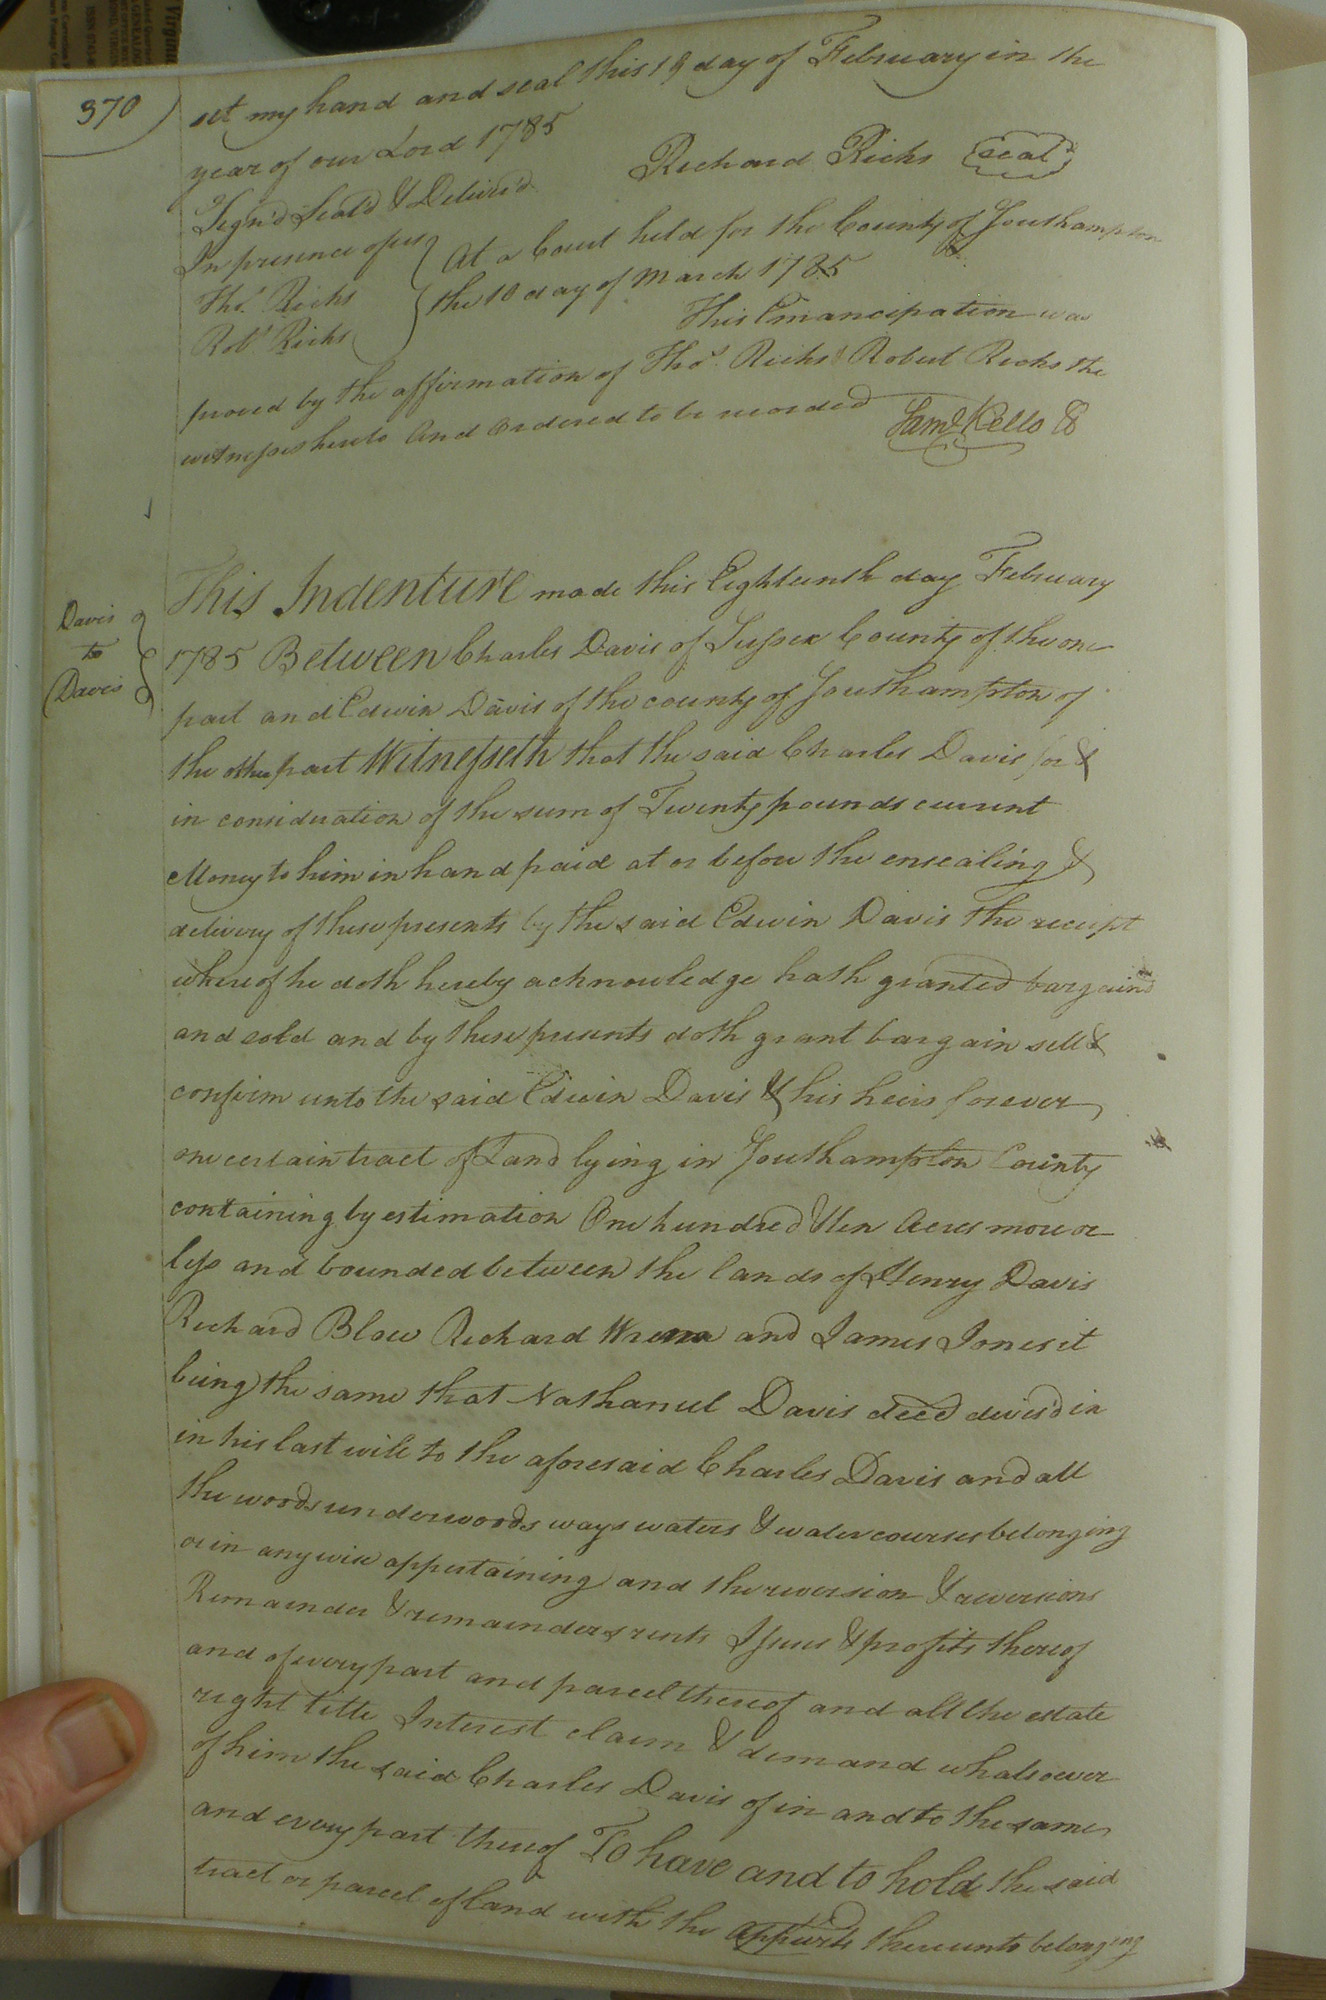 370
set my hand and seal this 19 day of February in the
year of our Lord 1785
Richard Ricks seal
Sign'd Seal'd & Deliver'd
In presence of us
Thos. Ricks
Robt. Ricks
At a Court held for the County of Southampton
the 10 day of March 1785
This Emancipation was
proved by the affirmation of Thos. Ricks & Robert Ricks the
witnesses hereto And Ordered to be recorded
Saml Kello
Davis
to
Davis
This Indenture made this Eighteenth day February
1785 Between Charles Davis of Sussex County of the one
part and Edwin Davis of the county of Southampton of
the other part Witnesseth that the said Charles Davis for &
in consideration of the sum of Twenty pounds current
Money to him in hand paid at or before the ensealing &
delivery of these presents by the said Edwin Davis the receipt
whereof he doth hereby acknowledge hath granted bargaind
and sold and by these presents doth grant bargain sell &
confirm unto the said Edwin Davis & his heirs forever
one certain tract of Land lying in Southampton County
containing by estimation One hundred & ten Acres more or
less and bounded between the lands of Henry Davis
Richard Blow Richard and James Jones it
being the same that Nathaniel Davis decd devisd in
in his last will to the aforesaid Charles Davis and all
the woods underwoods ways waters & watercourses belonging
or in any wise appertaining and the reversion & reversions
Remainder & remainders rents Issues & profits thereof
and of every part and parcel thereof and all the estate
right title Interest claim & demand whatsoever
of him the said Charles Davis of in and to the same
and every part thereof To have and to hold the said
tract or parcel of land with the appurts thereunto belonging